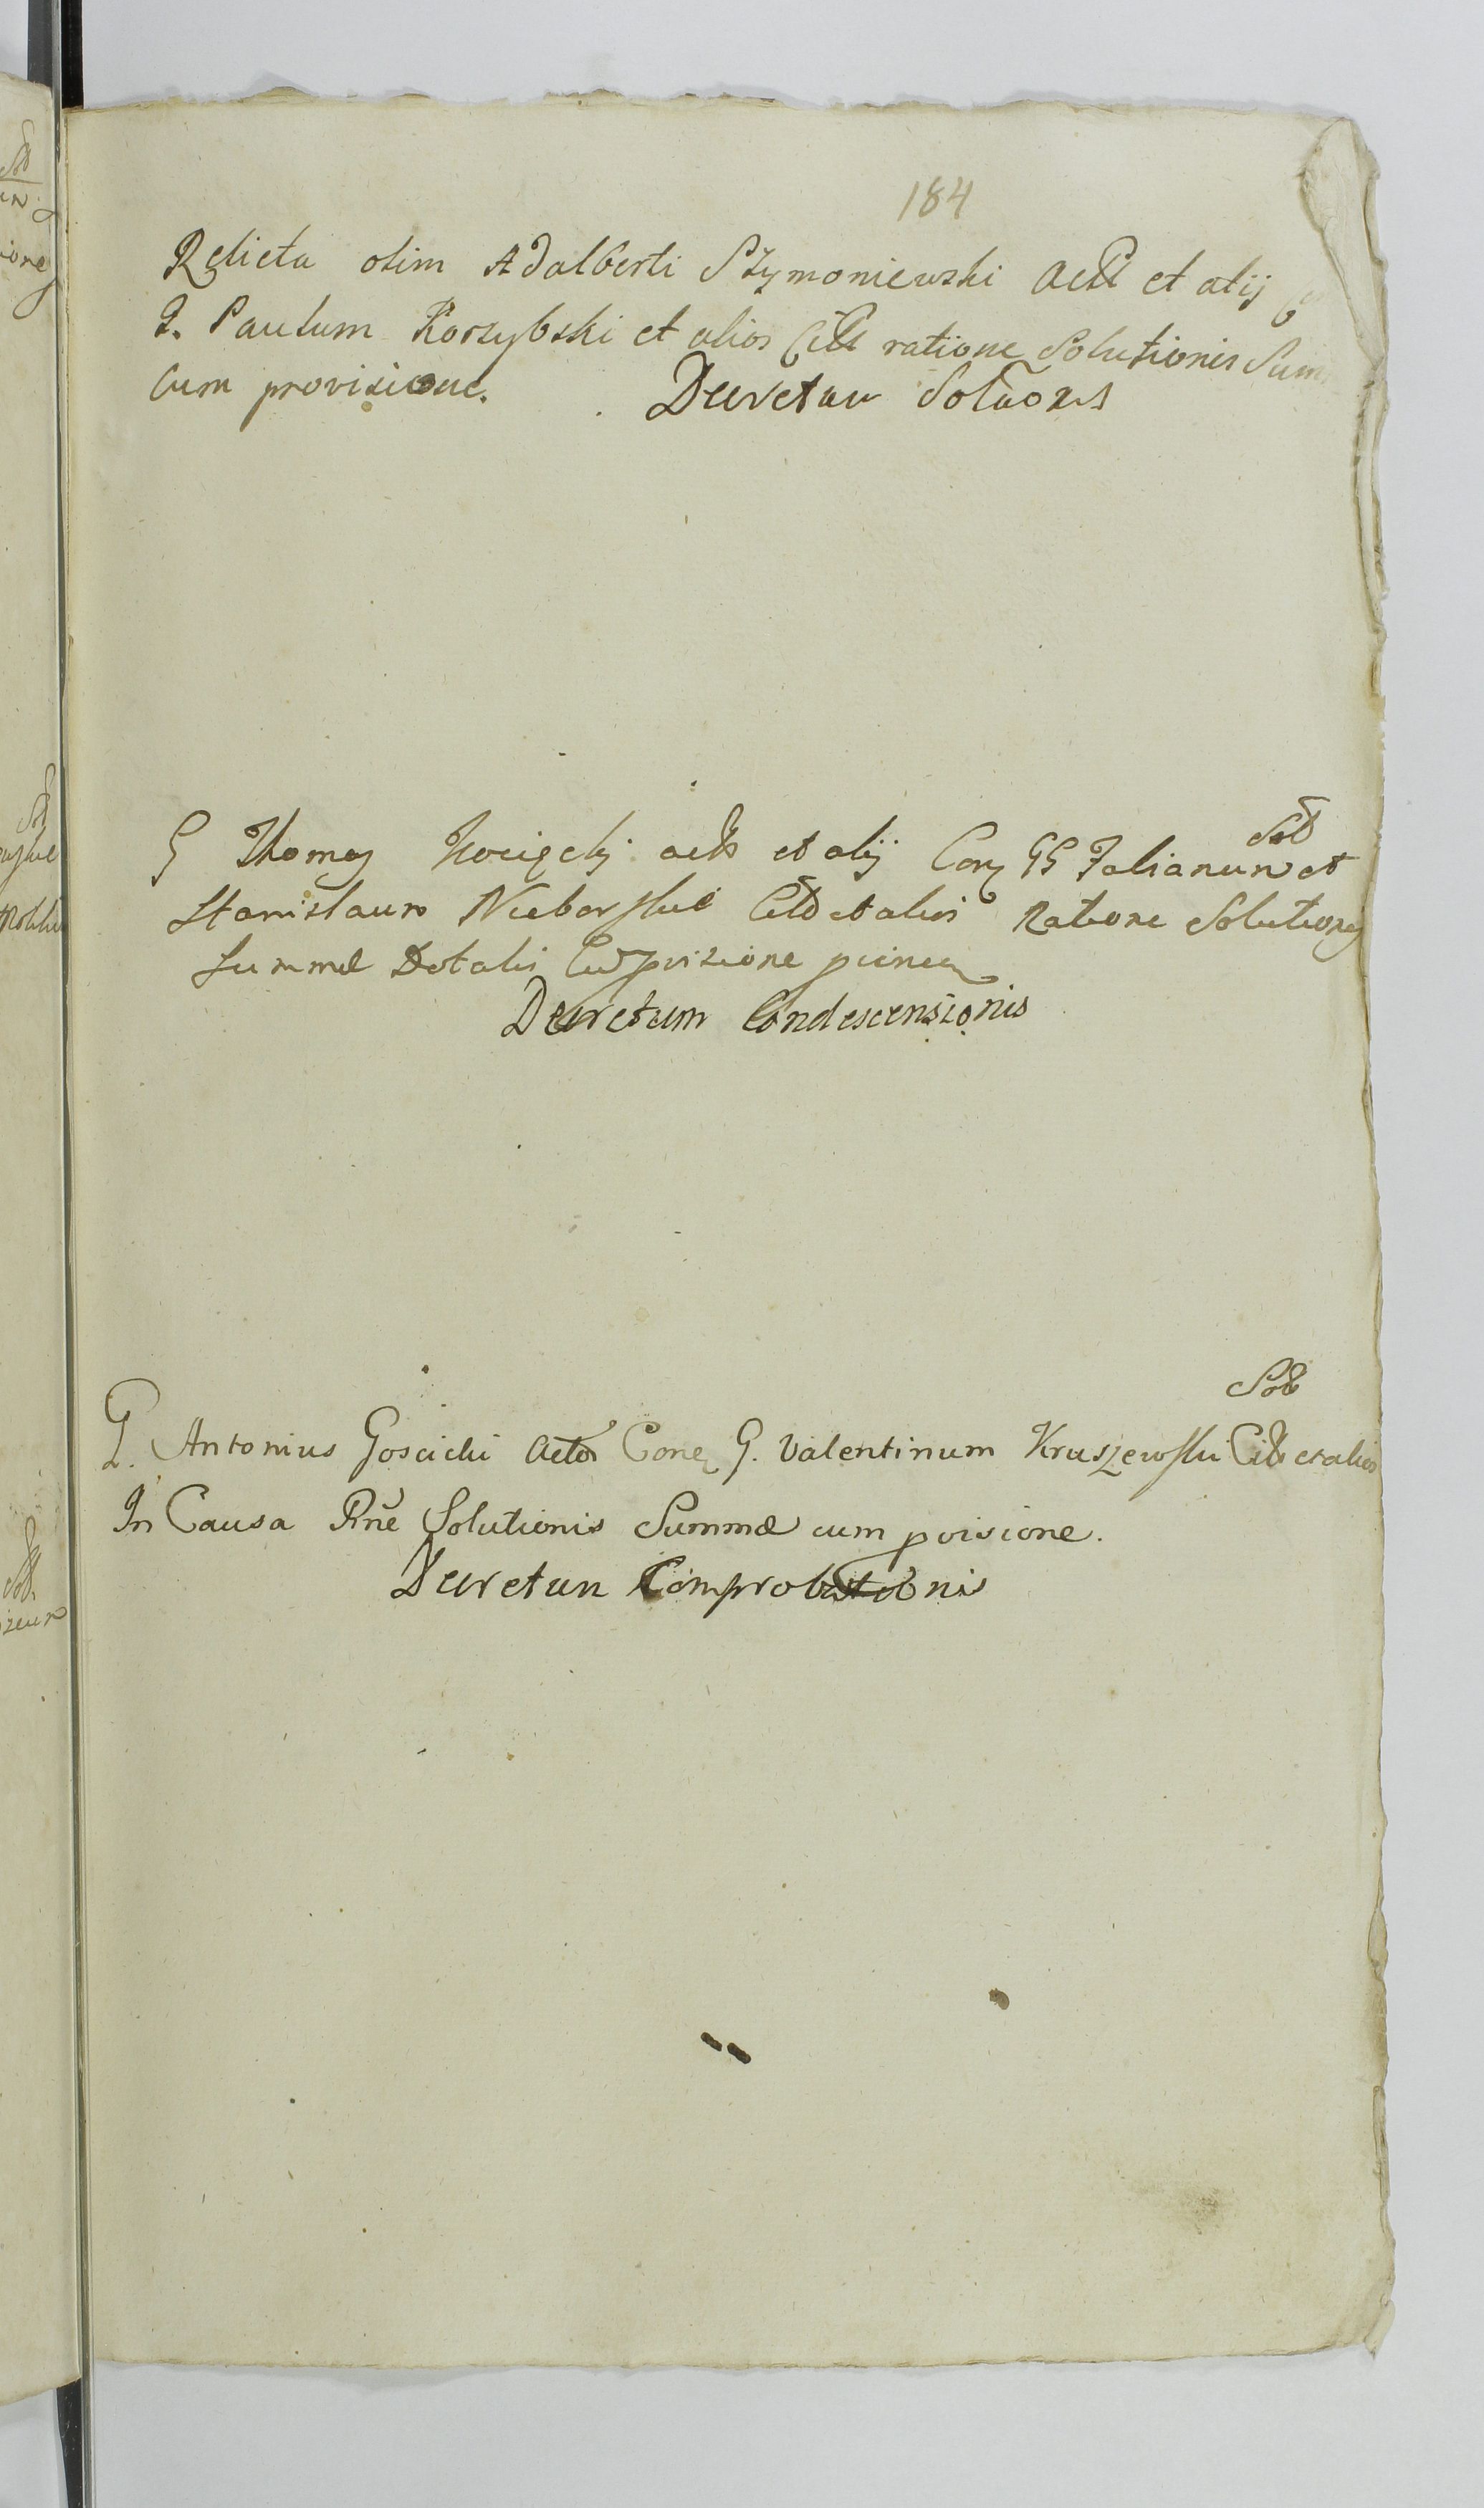 184
Relicta olim Adalberti Szymoniewski Act et alij
G. Paulum Korzybski et alios Citt ratione Solutionis Sum
Cum provisione. Decretum Soluõis
Sôł
G Thomas act et alij Con GG Falianum et
Stanislaum Nieborskie Citt et alios Ratione Solutiones
Summæ Dotalis Cũ pvisione
Decretum Condescensionis
Sôł
G. Antonius Goscicki Actor Con G. Valentinum Kruszewski Citt et alios
In Causa Rñe Solutionis Summæ cum pvisione.
Decretum Comprobationis